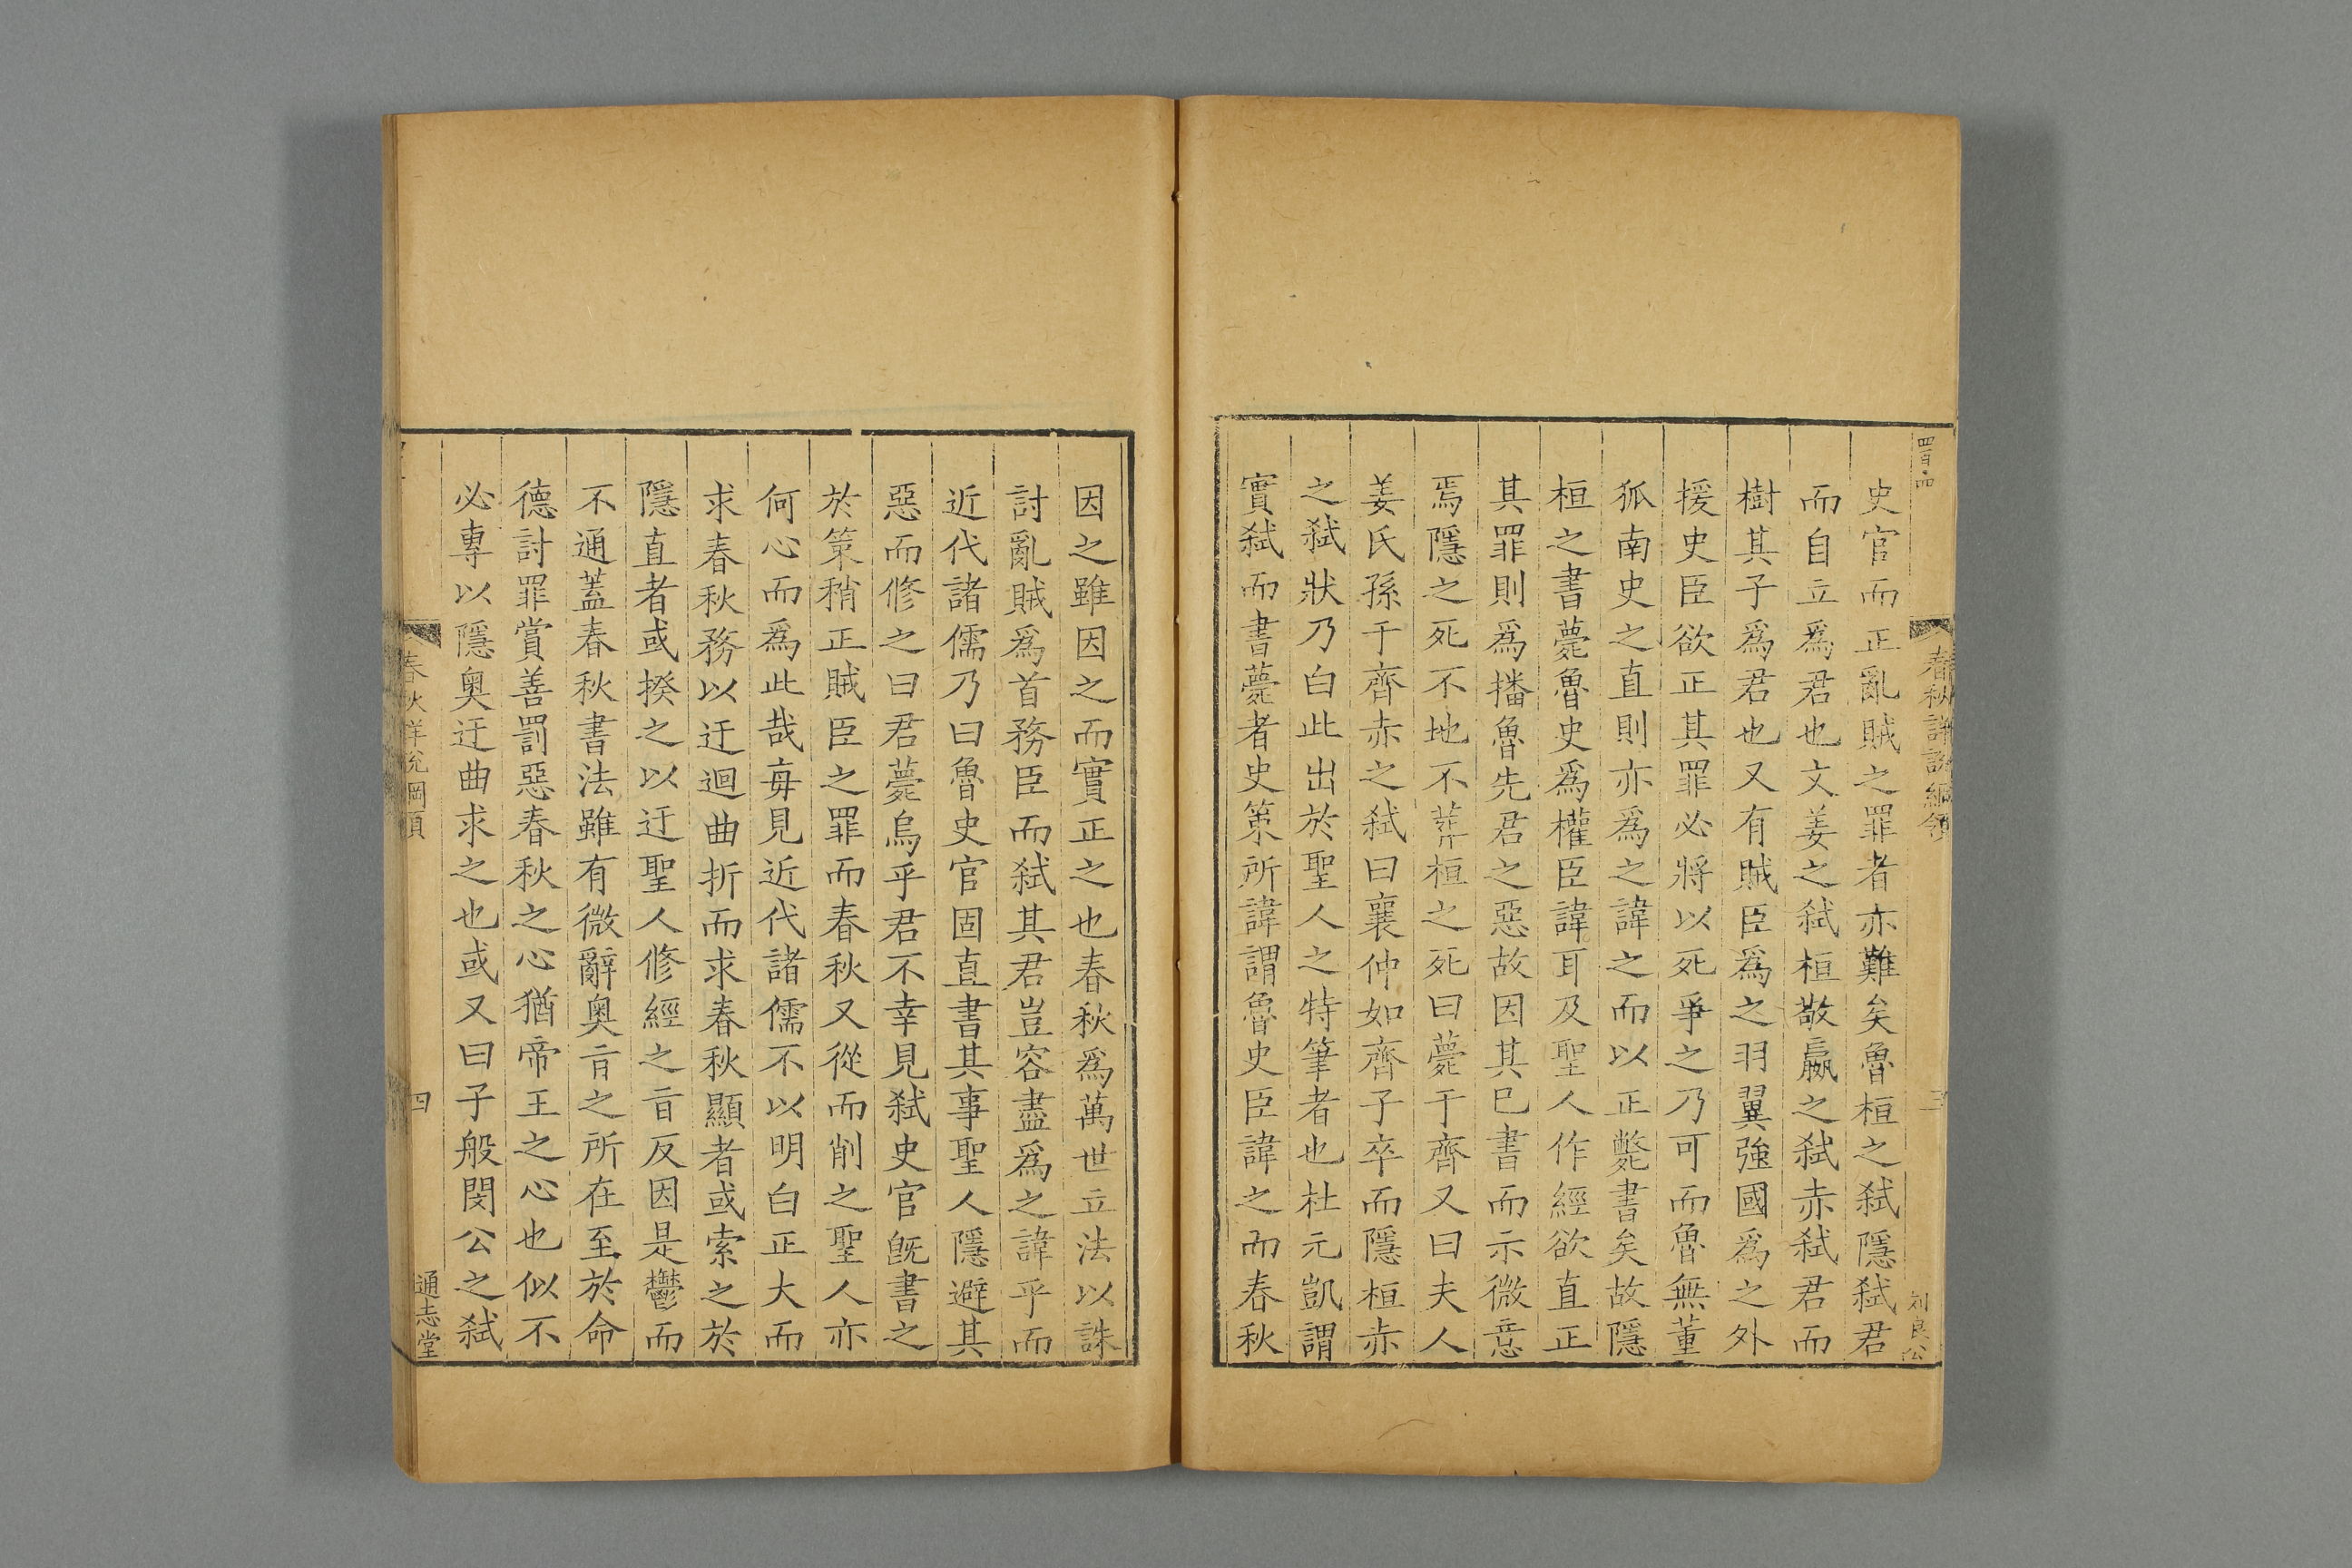 春秋詳說綱領
史官而正亂賊之罪者亦難矣魯桓之弑隱弑君
而自立爲君也文姜之弑桓敬嬴之弑赤弑君而
樹其子爲君也又有賊臣爲之羽翼強國爲之外
援史臣欲正其罪必將以死爭之乃可而魯無董
狐南史之直則亦爲之諱之而以正斃書矣故隱
桓之書薨魯史爲權臣諱耳及聖人作經欲直正
其罪則爲播魯先君之惡故因其已書而示微意
焉隱之死不地不葬桓之死曰薨于齊又曰夫人
姜氏孫于齊赤之弑曰襄仲如齊子卒而隱桓赤
之弑狀乃白此出於聖人之特筆者也杜元凱謂
實弑而書薨者史策所諱謂魯史臣諱之而春秋
刘良公
因之雖因之而實正之也春秋爲萬世立法以誅
討亂賊爲首務臣而弑其君豈容盡爲之諱乎而
近代諸儒乃曰魯史官固直書其事聖人隱避其
惡而修之曰君薨烏乎君不幸見弑史官旣書之
於策稍正賊臣之罪而春秋又從而削之聖人亦
何心而爲此哉毎見近代諸儒不以明白正大而
求春秋務以迂迴曲折而求春秋顯者或索之於
隱直者或揆之以迂聖人修經之㫖反因是鬱而
不通蓋春秋書法雖有微辭奧㫖之所在至於命
德討罪賞善罰惡春秋之心猶帝王之心也似不
必專以隱奧迂曲求之也或又曰子般閔公之弑
春秋詳說綱領
四
通志堂